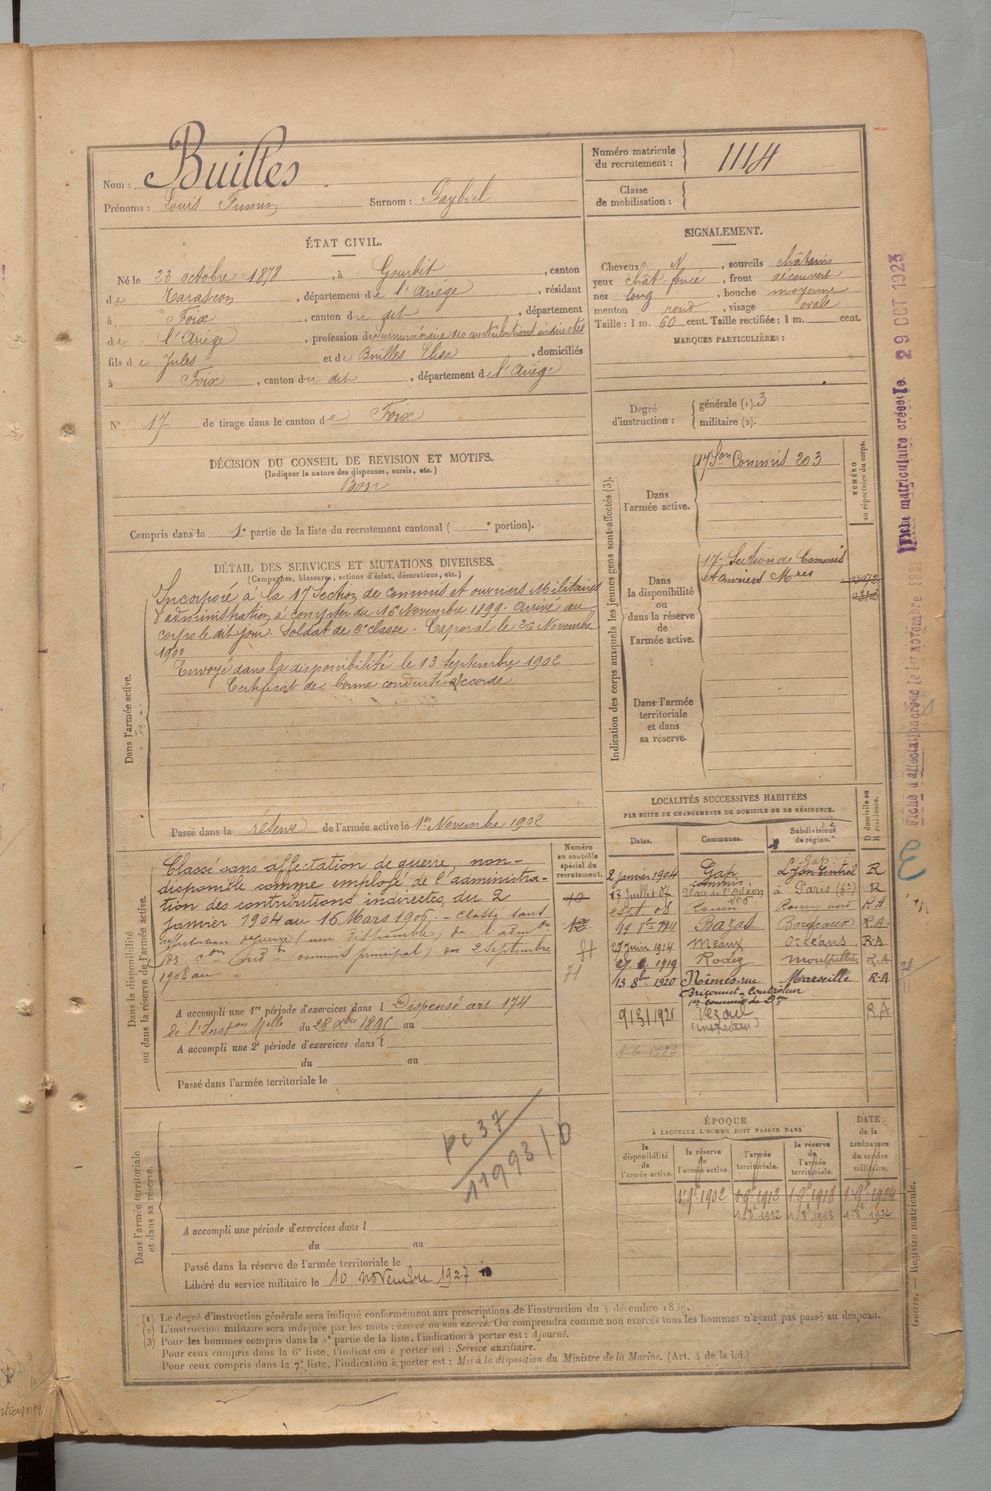 Nom : Builles
Prénoms : Louis Surnom :
Numéro matricule du recrutement : 1114
Classe de mobilisation :
ÉTAT CIVIL.
Né le 23 octobre 1878, à Gourbit, canton
de Tarascon, département de l'Ariège, résidant
à Foix, canton du dit, département
de l'Ariège, profession de surnuméraire des contributions indirectes
fils de Jules et de Builles Elisa, domiciliés
à Foix, canton du dit, département de l'Ariège
N° 17 de tirage dans le canton de Foix
SIGNALEMENT.
Cheveux N, sourcils châtains
yeux chât. foncé, front découvert
nez long, bouche moyenne
menton rond, visage ovale
Taille : 1 m. 60 cent. Taille rectifiée : 1 m. cent.
MARQUES PARTICULIÈRES :
Degré d'instruction : générale (1). 3
militaire (2).
DÉCISION DU CONSEIL DE REVISION ET MOTIFS.
(Indiquer la nature des dispenses, sursis, etc.)
Bon
Compris dans la 1e partie de la liste du recrutement cantonal ( e portion).
DÉTAIL DES SERVICES ET MUTATIONS DIVERSES.
(Campagnes, blessures, actions d'éclat, décorations, etc.)
Dans l'armée active.
Incorporé à la 17 Section de commis et ouvriers Militaires
d'administration à compter du 16 Novembre 1899. Arrivé au
corps le dit jour. Soldat de 2e classe. Caporal le 26 Novembre
1900
Envoyé dans la disponibilité le 13 Septembre 1902
Certificat de bonne conduite accordé
Passé dans la réserve de l'armée active le 1er Novembre 1902
Indication des corps auxquels les jeunes gens sont affectés (3).
NUMÉRO au répertoire du corps.
Dans l'armée active.
17 Son Commis 203
Dans la disponibilité ou dans la réserve de l'armée active.
17e Section de Commis
et ouvriers Mres
Dans l'armée territoriale et dans sa réserve.
Dans la disponibilité ou dans la réserve de l'armée active.
Numéro au contrôle spécial du recrutement.
Classé sans affectation de guerre, non-
disponible comme employé de l'administra-
tion des contributions indirectes, du 2
janvier 1904 au 16 Mars 1906. - Classé sans
affectation de guerre (non disponible) de l'adm on
des con ind tes (commis principal) du 2 Septembre
1908 au
A accompli une 1re période d'exercices dans l Dispensé art 174
de l'Inston Melle du 28 Xbre 1895 au
A accompli une 2e période d'exercices dans l
du au
Passé dans l'armée territoriale le
LOCALITÉS SUCCESSIVES HABITÉES
PAR SUITE DE CHANGEMENTS DE DOMICILE OU DE RÉSIDENCE.
Dates. Communes. Subdivisions de région. D domicile ou R résidence.
2 janvier 1904 Gap Lyon Central R
commis
17 Juillet 07 place de l'Odéon n° 6 à Paris R
2 Sept. 08 Rouen nord R A
1911 Bazas Bordeaux R.A.
27 Juin 1914 Meaux Orléans R A
1919 Rodez Montpellier R.A
13 8bre 1920 Nîmes rue Marseille R-A
Bricomet - Contrôleur
9/3/1925 Vezoul R A
(inspecteur)
ÉPOQUE
À LAQUELLE L'HOMME DOIT PASSER DANS
la disponibilité de l'armée active.
la réserve de l'armée active.
l'armée territoriale.
la réserve de l'armée territoriale.
DATE de la LIBÉRATION du service militaire.
1-9e 1902 1-9e 1912 1-9e 1918 1-9e 1924
1-8e 1912 1-8e 1918 1-8e 1924
Dans l'armée territoriale et dans sa réserve.
pc 37
11993/D
A accompli une période d'exercices dans l
du au
Passé dans la réserve de l'armée territoriale le
Libéré du service militaire le 10 novembre 1927
(1) Le degré d'instruction générale sera indiqué conformément aux prescriptions de l'instruction du 4 décembre
(2) L'instruction militaire sera indiquée par les mots : exercé ou non exercé. On comprendra comme non exercés tous les hommes n'ayant pas passé au drapeau.
(3) Pour les hommes compris dans la 5e partie de la liste, l'indication à porter est : Ajourné.
Pour ceux compris dans la 6e liste, l'indication à porter est : Service auxiliaire.
Pour ceux compris dans la 7e liste, l'indication à porter est : Mis à la disposition du Ministre de la Marine. (Art. 4 de la loi.)
Fiche matriculaire créée le 29 OCT 1923
Fiche d'affectation créée le 1er novembre
Registre matricule.